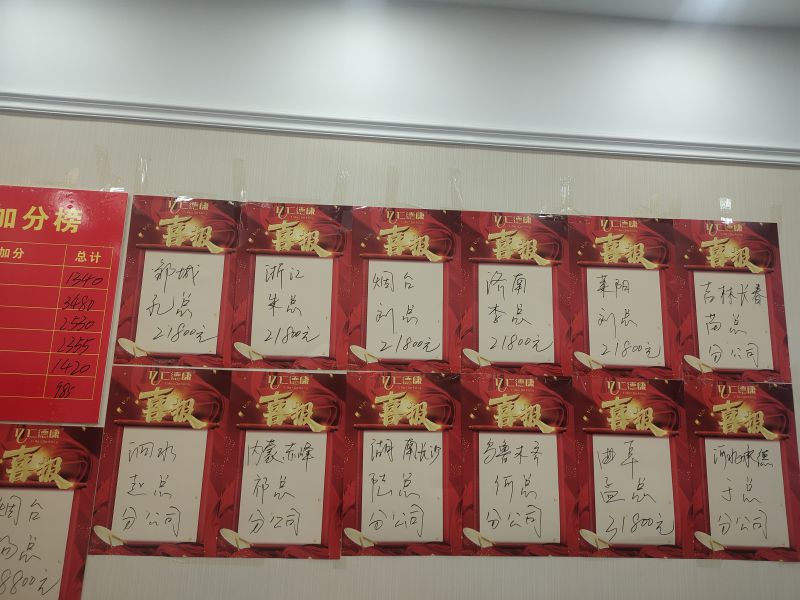 加分榜
加分 总计
1340
3480
2530
2355
1420
985
仁德康
喜报
郓城
孔总
21800元
仁德康
喜报
浙江
朱总
21800元
仁德康
喜报
烟台
刘总
21800元
仁德康
喜报
济南
李总
21800元
仁德康
喜报
莱阳
刘总
21800元
仁德康
喜报
吉林长春
苗总
分公司
仁德康
喜报
烟台
总
8800元
仁德康
喜报
泗水
赵总
分公司
仁德康
喜报
内蒙赤峰
祁总
分公司
仁德康
喜报
湖南长沙
陆总
分公司
仁德康
喜报
乌鲁木齐
何总
分公司
仁德康
喜报
曲阜
孟总
31800元
仁德康
喜报
承德
于总
分公司